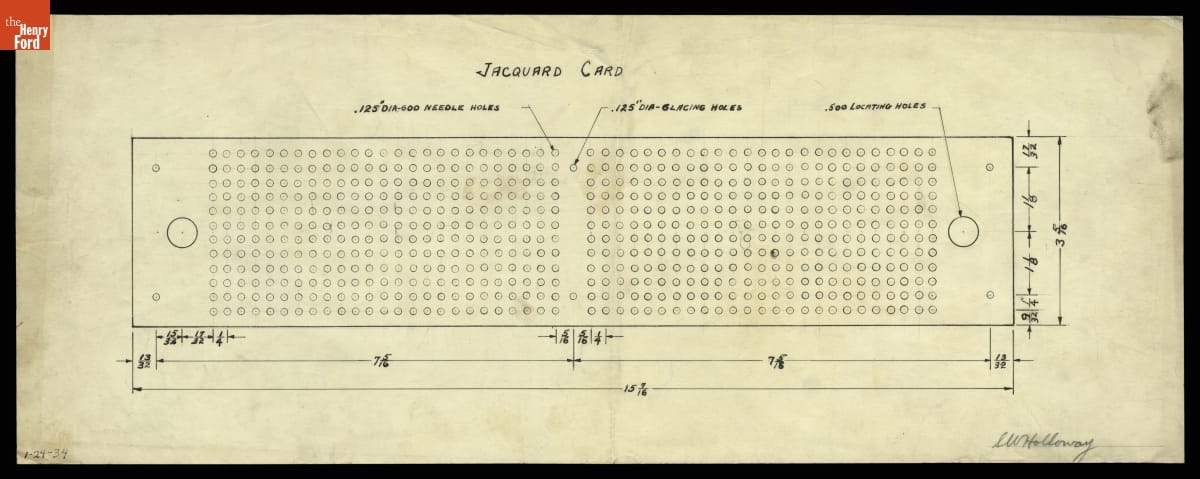 the
Henry
Ford
JACQUARD CARD
.125" DIA-600 NEEDLE HOLES
.125" DIA-6 LACING HOLES
.500 LOCATING HOLES
17/32
1 1/8
3 5/16
1 1/8
1/4
9/32
15/32
17/32
1/4
5/16
5/16
1/4
13/32
7 5/16
7 5/16
13/32
15 7/16
1-24-34
S.W. Holloway